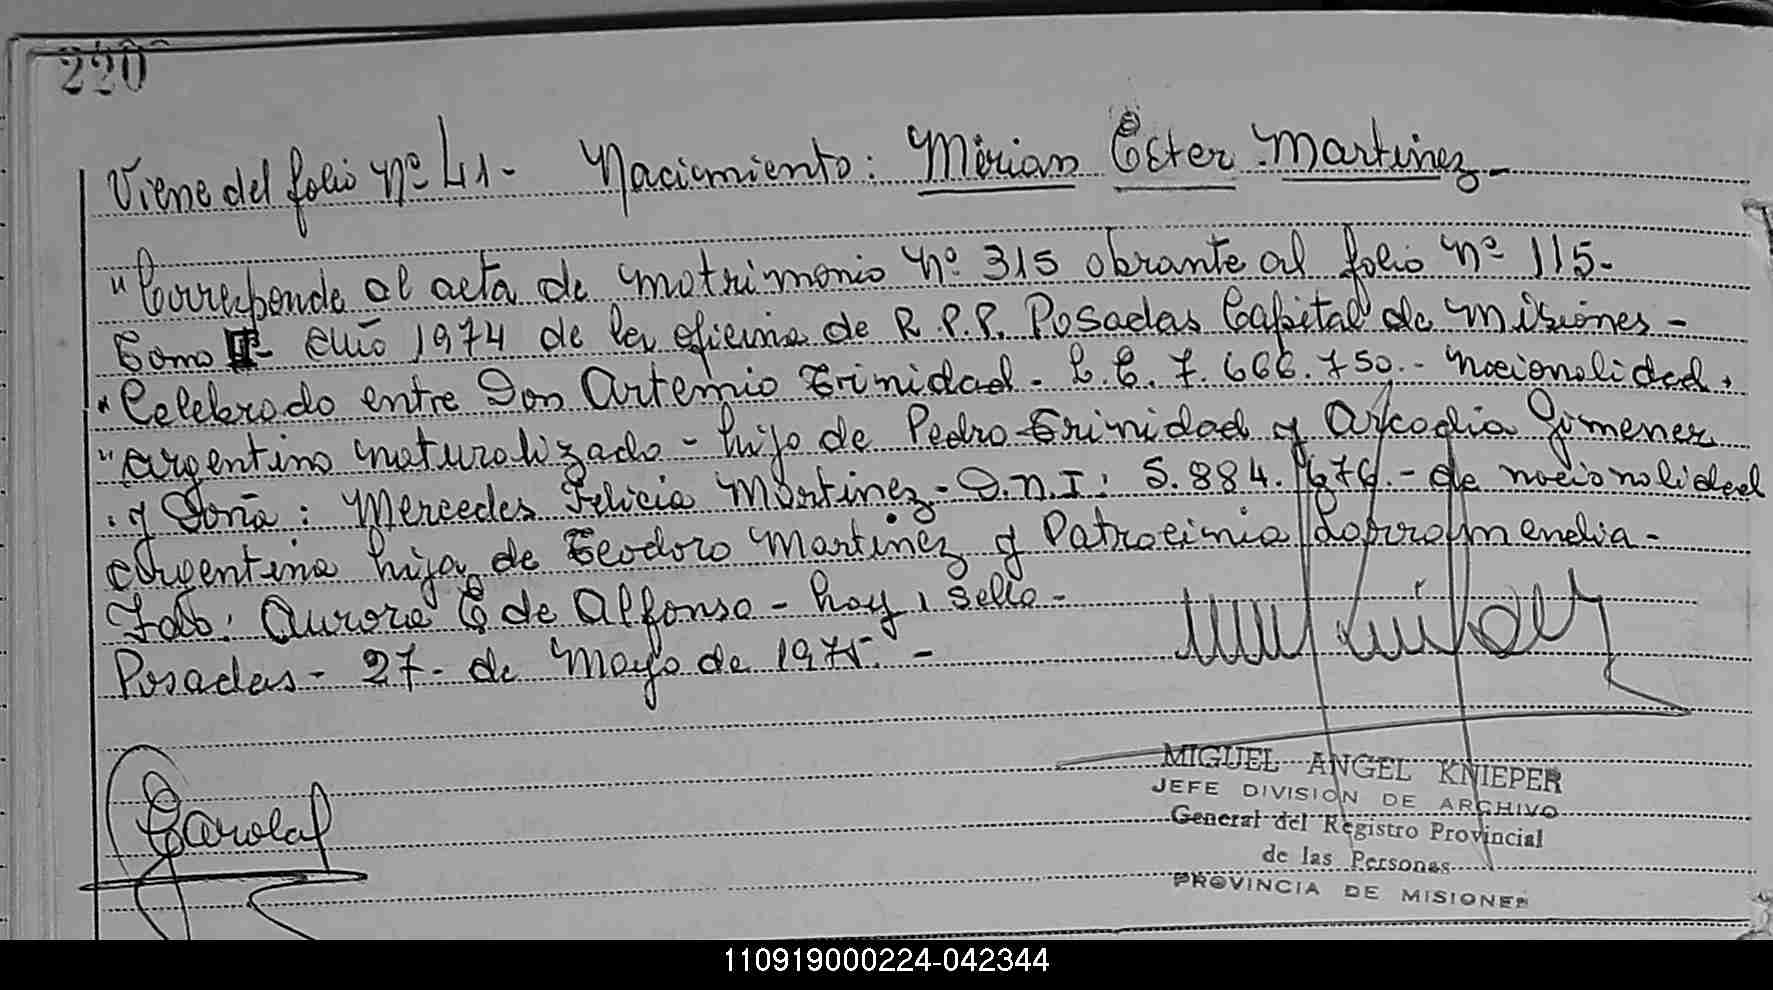 220
Viene del folio nº 41- Nacimiento: Mirian Ester Martinez-
"Corresponde al acta de matrimonio nº 315 obrante al folio nº 115-
Tomo I- Año 1974 de la oficina de R.P.P. Posadas Capital de Misiones-
"Celebrado entre Don Artemio Trinidad- C.E. 7.666.750.- nacionalidad
"argentino naturalizado- hijo de Pedro Trinidad y Arcadia Gimenez
y Doña: Mercedes Felicia Martinez- D.N.I: 5.884.676.- de nacionalidad
argentina hija de Teodoro Martinez y Patrocinia Larramendia-
Fdo: Aurora E de Alfonso- hay 1 sello-
Posadas- 27- de Mayo de 1975.-
MIGUEL ANGEL KNIEPER
JEFE DIVISION DE ARCHIVO
General del Registro Provincial
de las Personas
PROVINCIA DE MISIONES
110919000224-042344